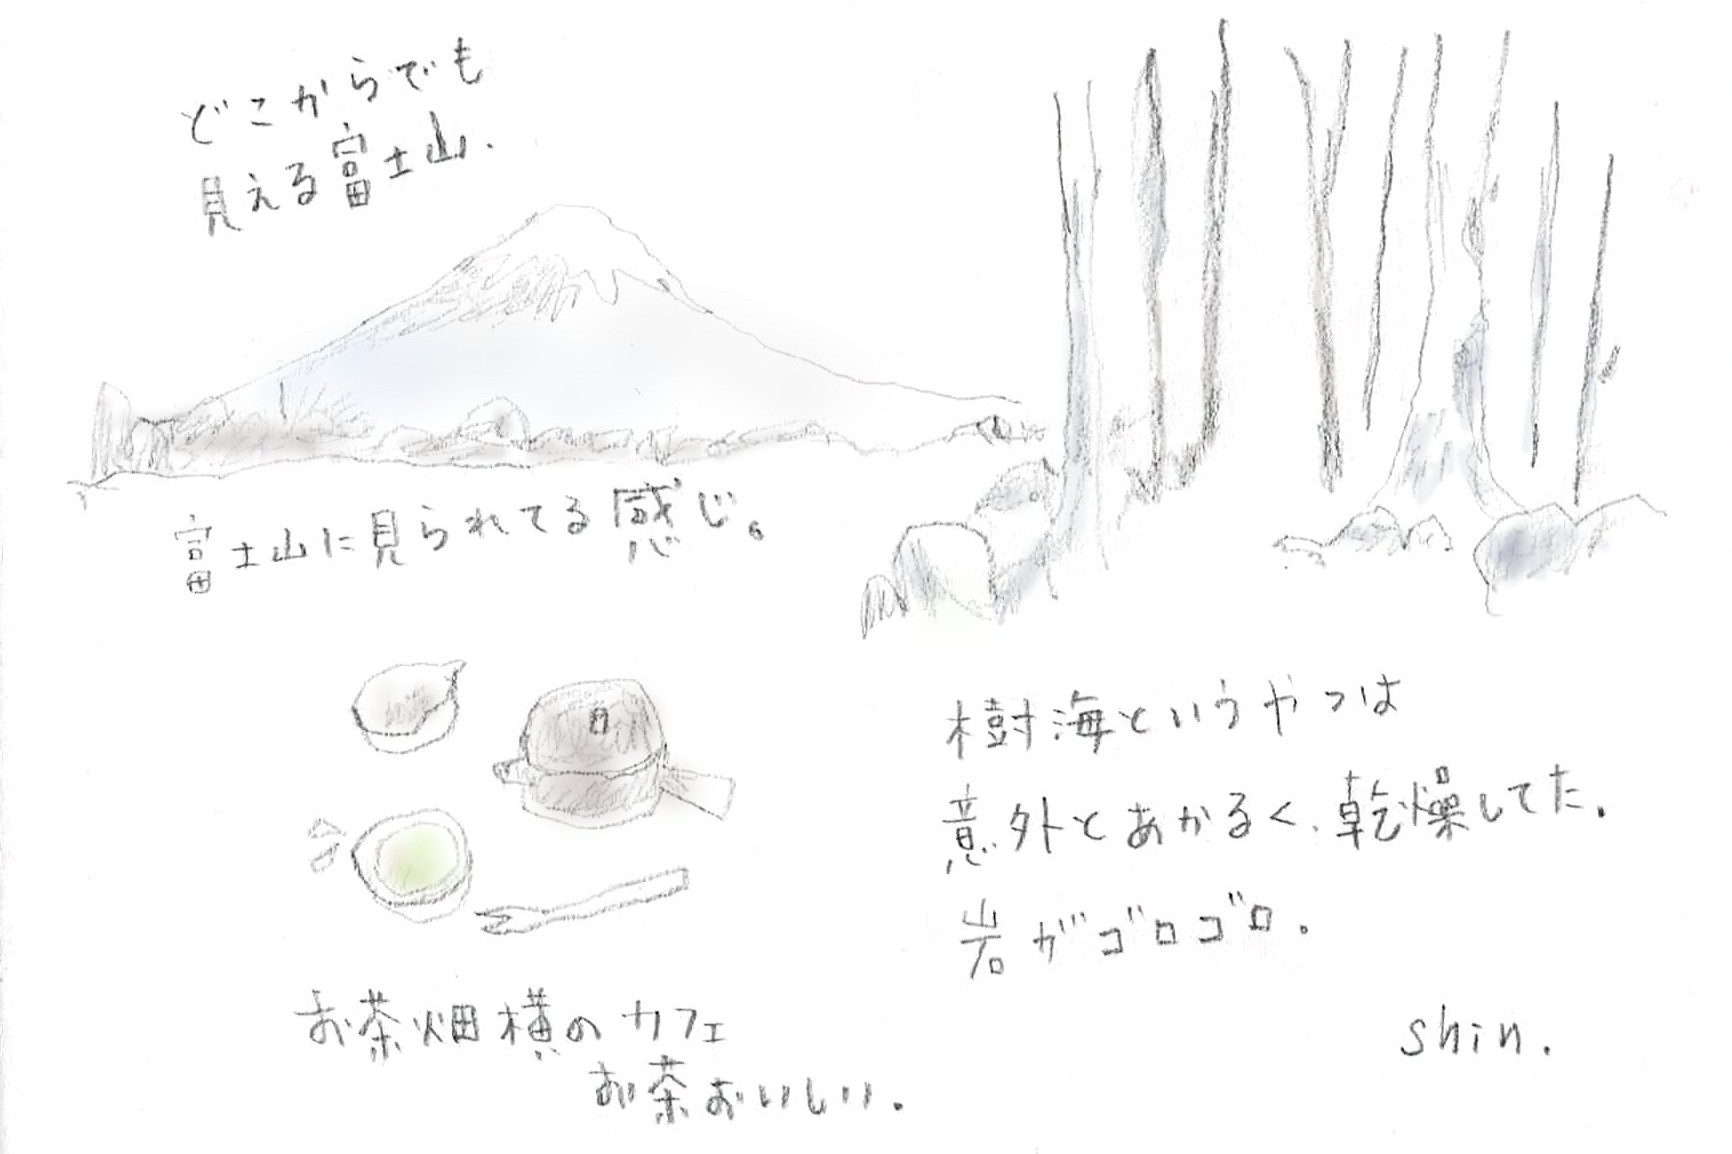 どこからでも
見える富士山.
富士山に見られてる感じ。
お茶畑横のカフェ
お茶おいしい.
樹海というやつは
意外とあかるく、乾燥してた.
岩がゴロゴロ.
shin.